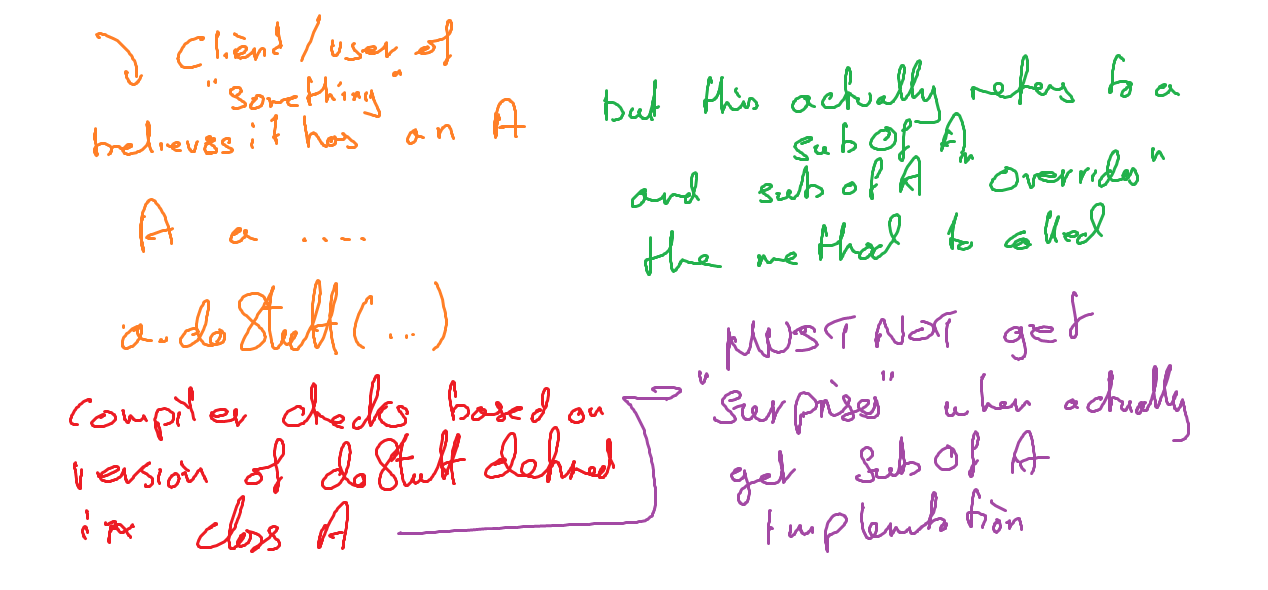 Client/user of
"something"
believes it has an A
A a ....
a.doStuff(...)
compiler checks based on
version of doStuff defined
in class A
but this actually refers to a
sub Of A
and sub of A "overrides"
the method to called
MUST NOT get
"surprises" when actually
get Sub Of A